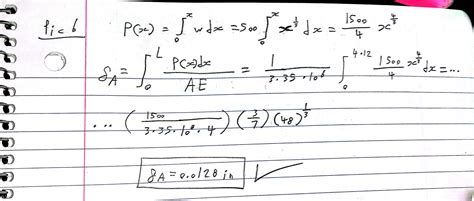 Pic 6
P(x) = ∫₀ˣ w dx = 500 ∫₀ˣ x^(1/3) dx = 1500/4 x^(4/3)
δ_A = ∫₀ᴸ P(x)dx / AE = 1 / 3·35·10⁶ ∫₀^(4·12) 1500/4 x^(4/3) dx = ...
... (1500 / 3·35·10⁶·4) (3/7) (48)^(1/3)
δ_A = 0.0128 in